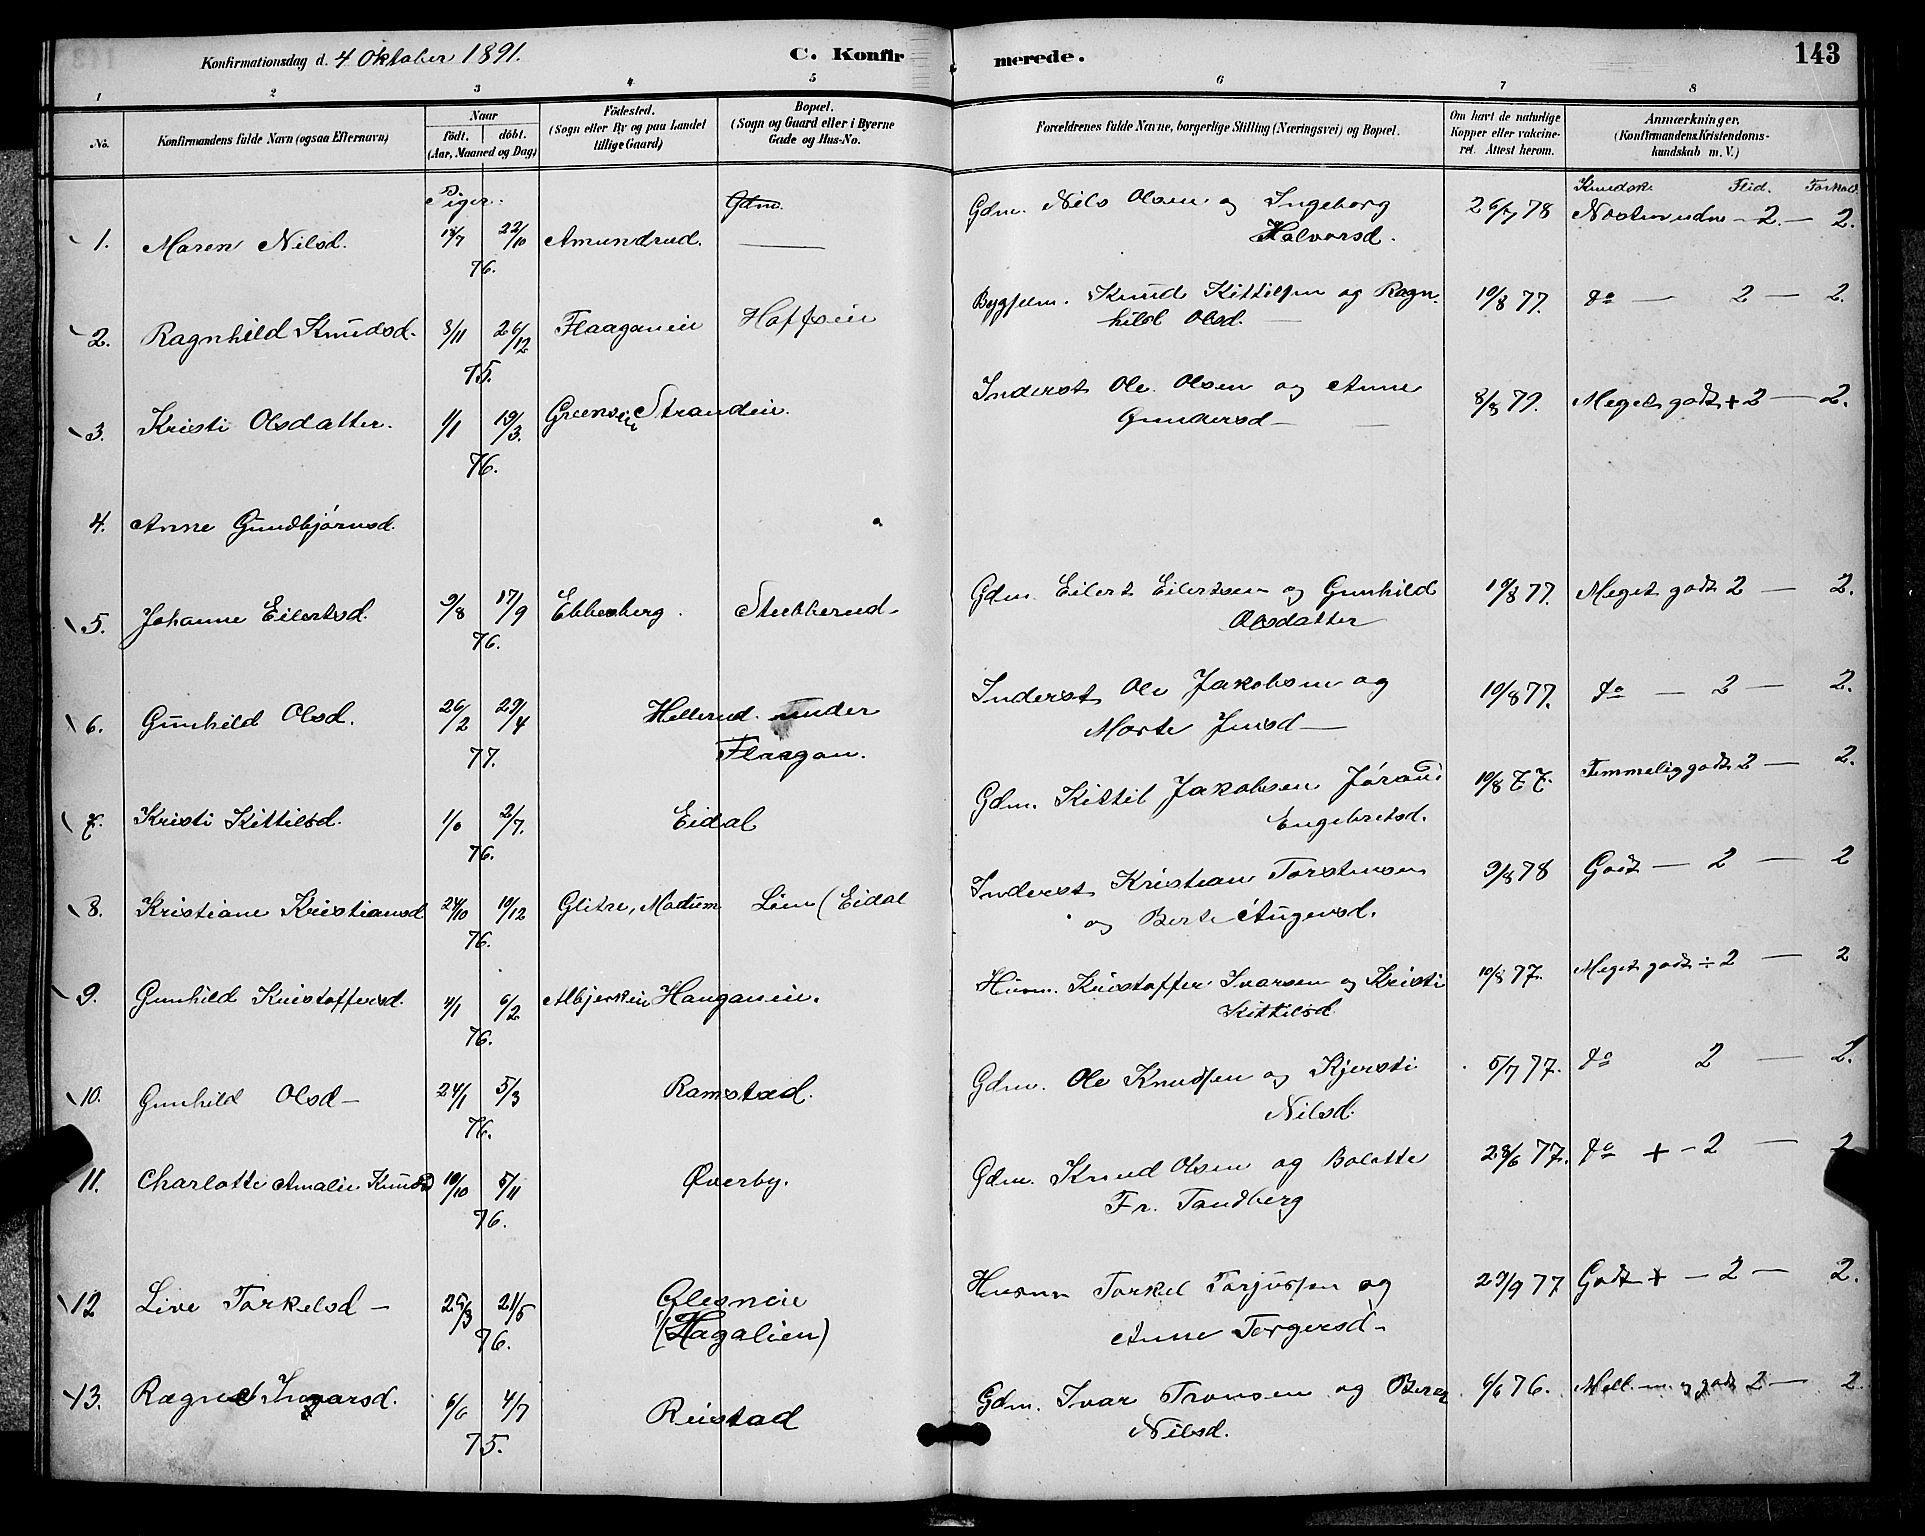 Konfirmationsdag d. 4 Oktober 1891. C. Konfirmerede. 143
1 2 3 4 5 6 7 8
No. Konfirmandens fulde Navn (ogsaa Efternavn) Naar födt. döbt. (Aar, Maaned og Dag) Födested. (Sogn eller By og paa Landet tillige Gaard) Bopæl. (Sogn og Gaard eller i Byerne Gade og Hus-No. Forældrenes fulde Navne, borgerlige Stilling (Næringsvei) og Bopæl. Om havt de naturlige Kopper eller vakcineret. Attest herom. Anmærkninger. (Konfirmandens Kristendomskundskab m. V.)
Piger. Gdm. Kundsk. Flid. Forhold
1. Maren Nilsd. 22/10 76. Amundrud. Gdm. Nils Olsen og Ingeborg 26/7 78 2. — 2.
Halvorsd.
2. Ragnhild Knudsd. 3/11 26/12 75. Flaaganeie Hoffseie Bygselm. Knud Kittilsen og Ragn- 10/8 77. do — 2 — 2.
hild Olsd.
3. Kristi Olsdatter. 1/1 19/3 76. Strandeie. Inderst Ole Olsen og Anne 8/8 79. Meget godt + 2 — 2.
Gundersd —
4. Anne Gundbjörnsd.
5. Johanne Eilertsd. 9/8 17/9 76. Ebbesberg. Stubberud Gdm. Eilert Eilertsen og Gunhild 10/8 77. Meget godt 2 — 2.
Olsdatter
6. Gunhild Olsd. 26/2 29/4 77. Hellerud under Inderst Ole Jakobsen og 10/8 77. do — 2 — 2.
Flaagan. Marte Jensd —
7. Kristi Kittilsd. 1/6 2/7. 76. Eidal Gdm. Kittil Jakobsen Jörand 10/8 77. Temmelig godt 2 — 2.
Engebretsd.
8. Kristiane Kristiansd 24/10 10/12 76. Glitre, Modum Lien (Eidal Inderst Kristian Torstensen 9/8 78 Godt — 2 — 2
og Berte Augensd.
9. Gunhild Kristoffersd. 4/1 6/2 76. Albjerkeie Hauganeie. Husm. Kristoffer Ivarsen og Kristi 10/8 77. Meget godt ÷ 2 — 2
Kittilsd
10. Gunhild Olsd — 24/1 5/3 76. Ramstad. Gdm. Ole Knudsen og Kjersti 5/7 77. do 2 — 2.
Nilsd.
11. Charlotte Amalie Knudsd 10/10 5/11 76. Øverby. Gdm. Knud Olsen og Bolette 28/6 77. do + — 2 — 2
Fr. Tandberg
12 Live Torkelsd — 25/3 21/5 76. Glesneie Husm Torkel Torjussen og 29/9 77 Godt + — 2 — 2.
(Hagalien) Anne Torgersd —
13. 6/6 4/7 75. Reistad Gdm. Ivar Tronsen og 6/6 76. 2 — 2.
Nilsd.